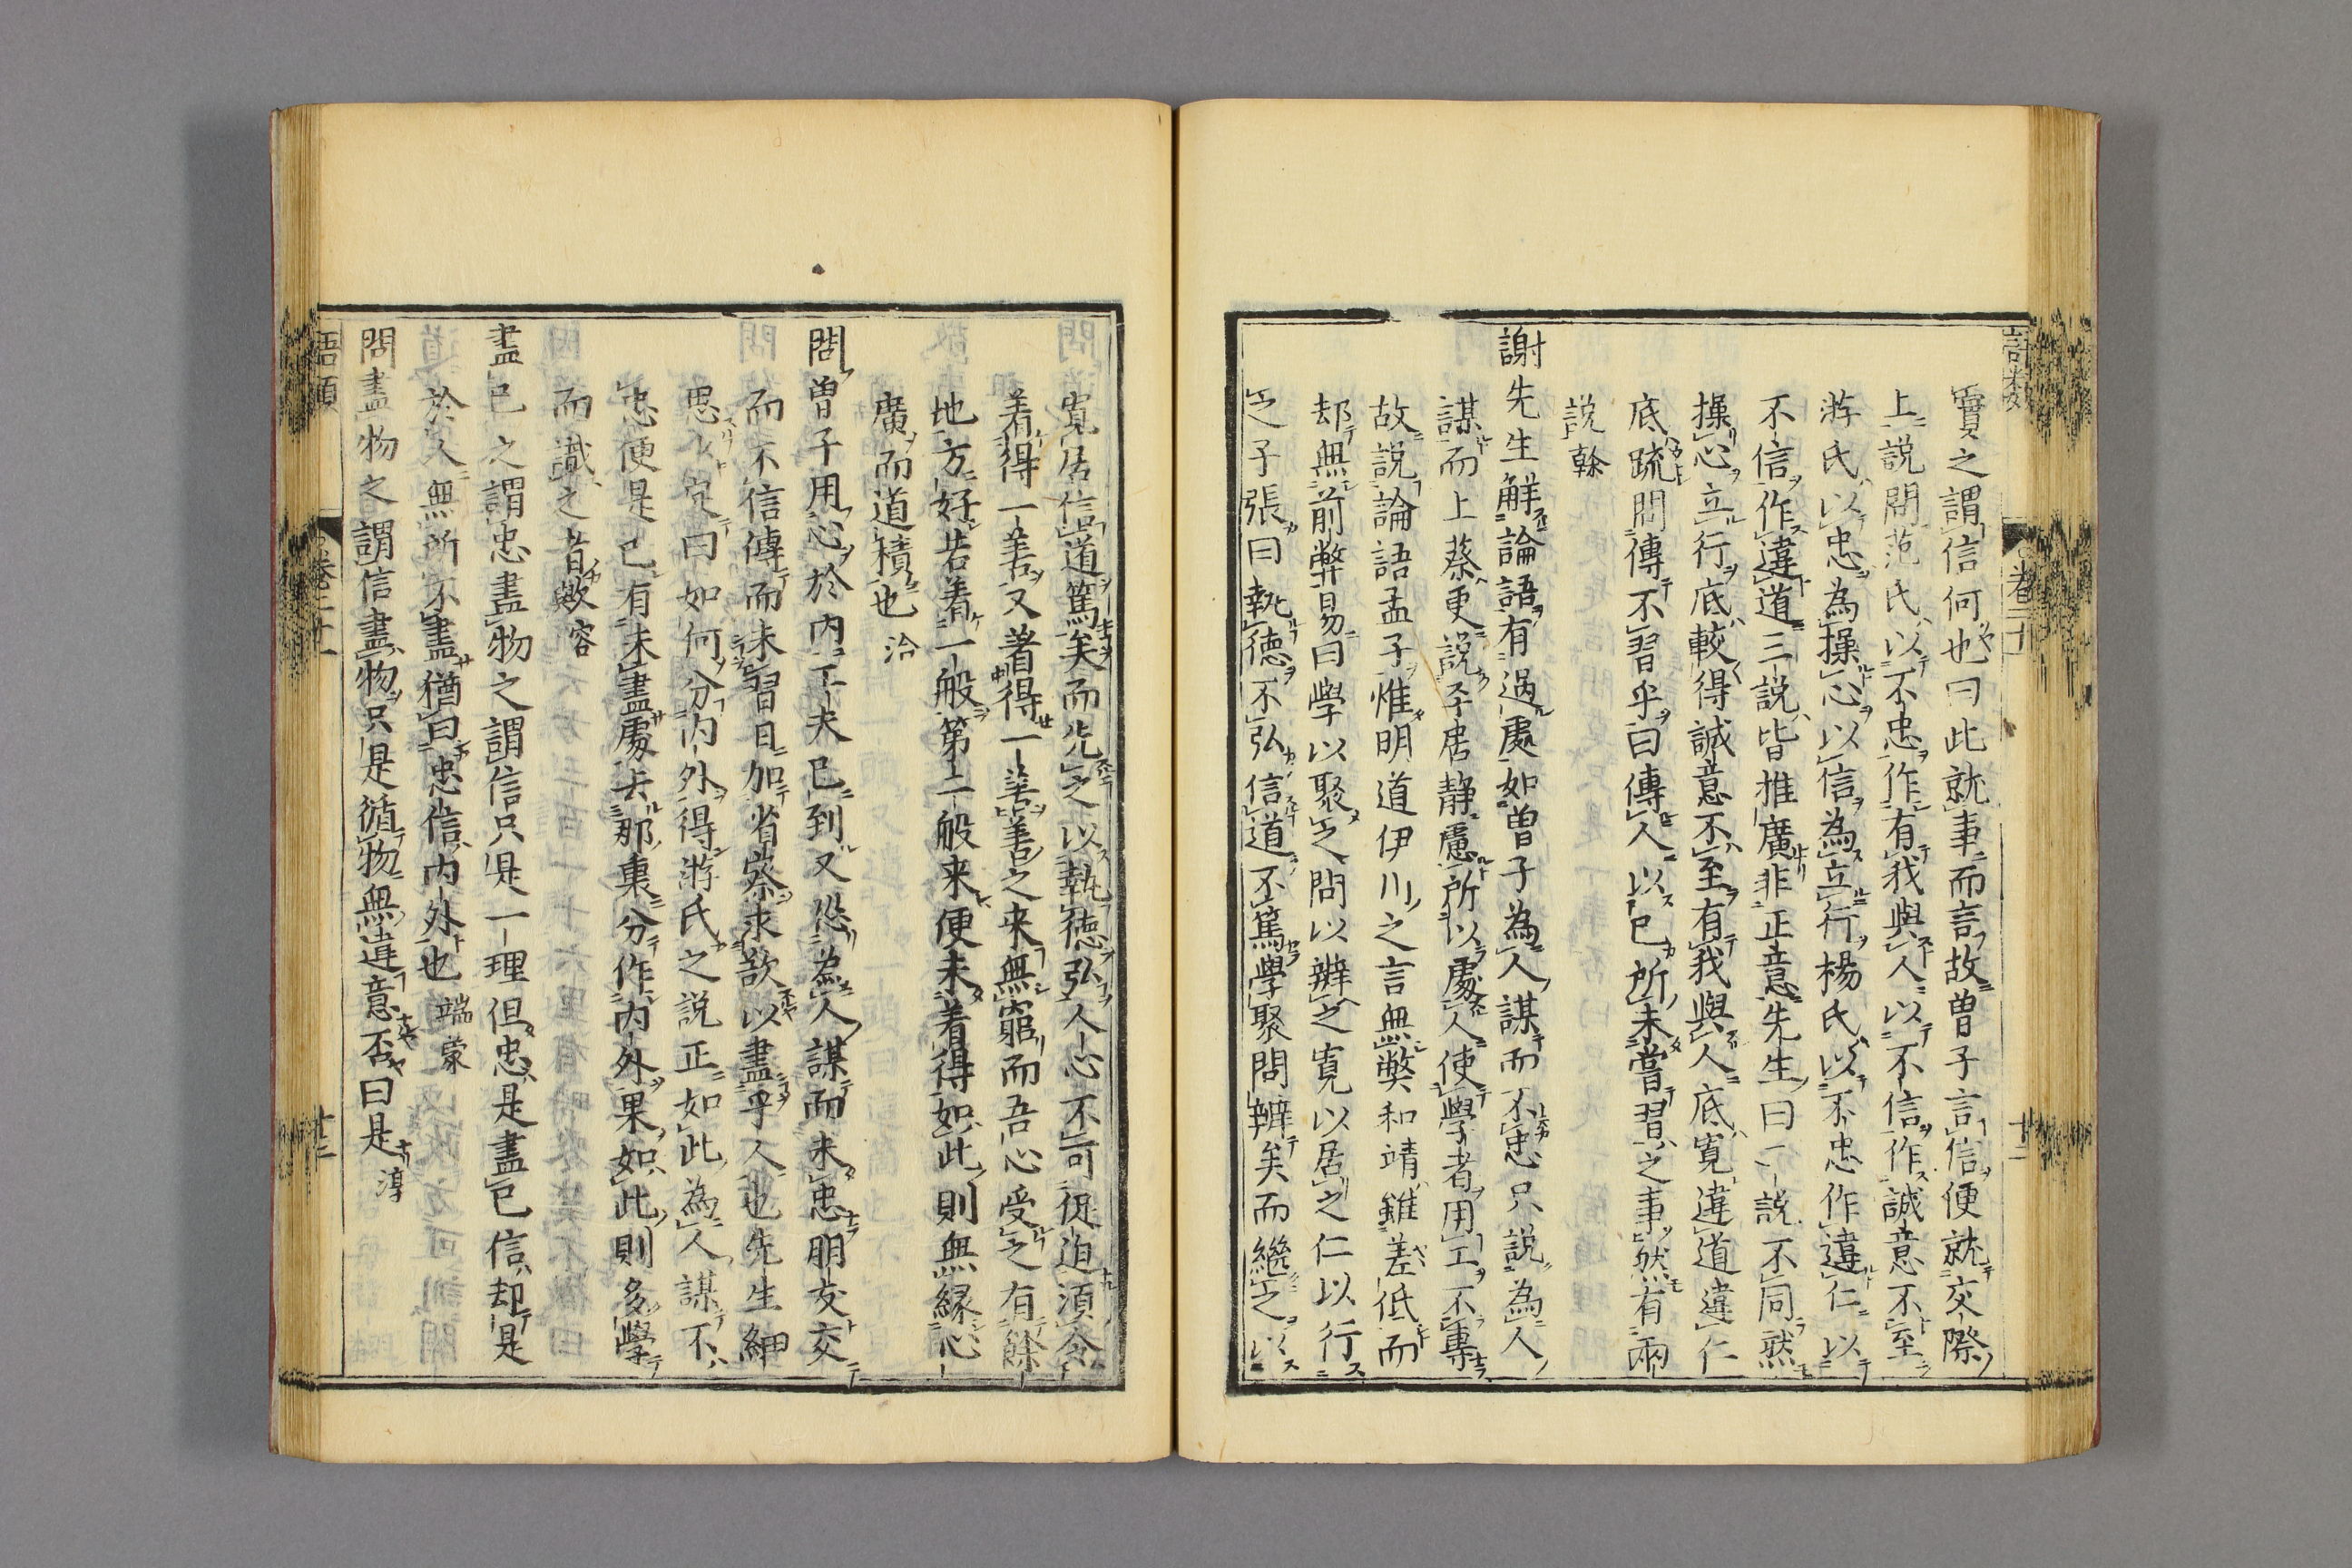 實之謂信何也曰此就事而言故曾子言信便就交際
上說問范氏以不忠作有我與人以不信作誠意不至
游氏以忠為操心以信為立行楊氏以不忠作違仁以
不信作違道三說皆推廣非正意先生曰一說不同然
操心立行底較得誠意不至有我與人底寬違道違仁
底疏問傳不習乎曰傳人以已所未嘗習之事然有兩
說榦
謝先生解論語有過處如曾子為人謀而不忠只說為人
謀而上蔡更說平居靜慮所以處人使學者用工不專
故說論語孟子惟明道伊川之言無弊和靖雖差低而
却無前弊易曰學以聚之問以辨之寬以居之仁以行
之子張曰執德不弘信道不篤學聚問辨矣而繼之以
語類 卷二十一 十二
寬居信道篤矣而先之以執德弘人心不可促迫須令
着得一善又著得一善善之来無窮而吾心受之有餘
地方好若着一般第二般来便未着得如此則無緣心
廣而道積也 洽
問曾子用心於內工夫已到又恐為人謀而未忠朋友交
而不信傳而未習日加省察求欲以盡乎人也先生細
思少定曰如何分內外得游氏之說正如此為人謀不
忠便是己有未盡處去那裏分作內外果如此則多學
而識之者歟 容
盡己之謂忠盡物之謂信只是一理但忠是盡己信却是
於人無所不盡猶曰忠信內外也 端蒙
問盡物之謂信盡物只是循物無違意否曰是 淳
語類 卷二十一 十二